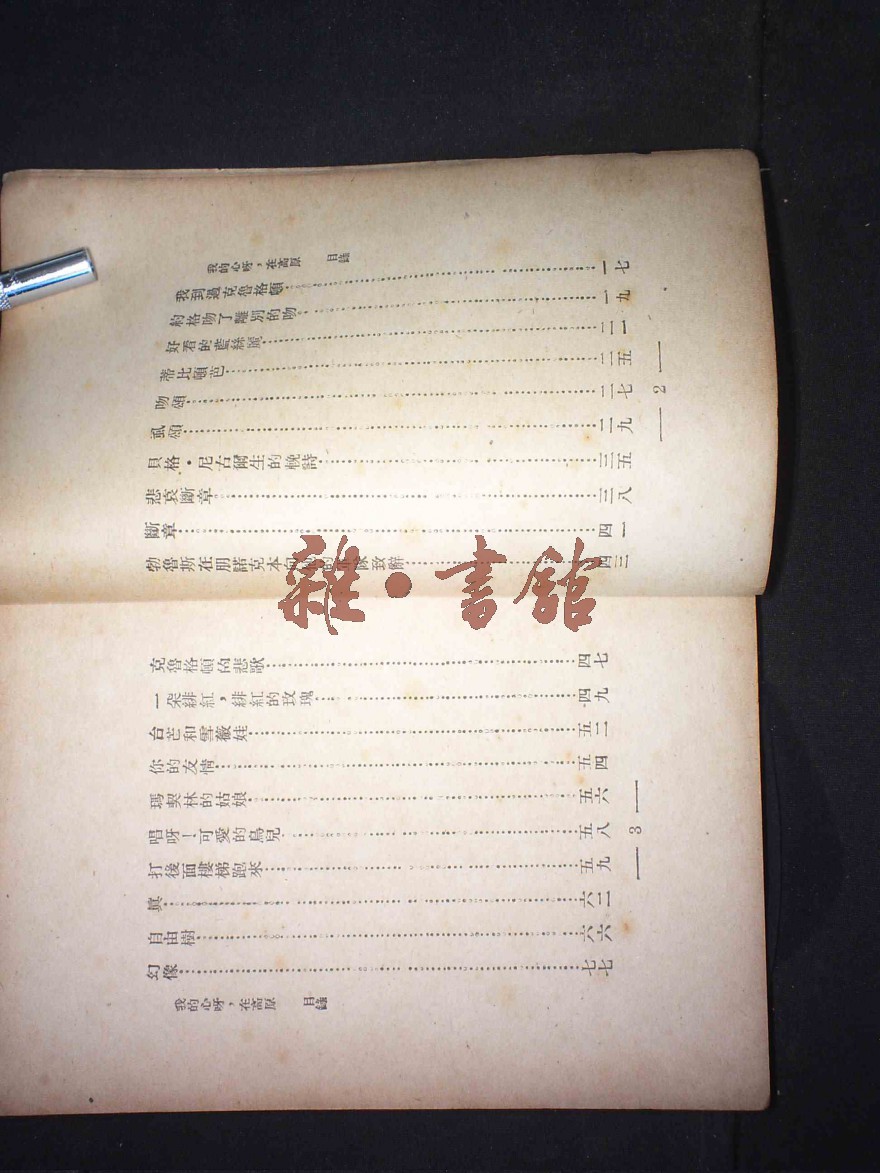 我的心呀，在高原　目錄
我到過克魯格頓……一七
約格吻了離別的吻……一九
好看的藍絲麗……二一
蒂比頓芭……二五
吻頌……二七
虱頌……二九
貝格・尼古爾生的輓詩……三五
悲哀斷章……三八
斷章……四一
勃魯斯在朋諾克本向 致辭……四三
2
克魯格頓的悲歌……四七
一朵緋紅，緋紅的玫瑰……四九
台芒和雪薇娃……五二
你的友情……五四
瑪契林的姑娘……五六
唱呀！可愛的鳥兒……五八
打後面樓梯跑來……五九
眞……六二
自由樹……六六
幻像……七七
我的心呀，在高原　目錄
3
雜●書館